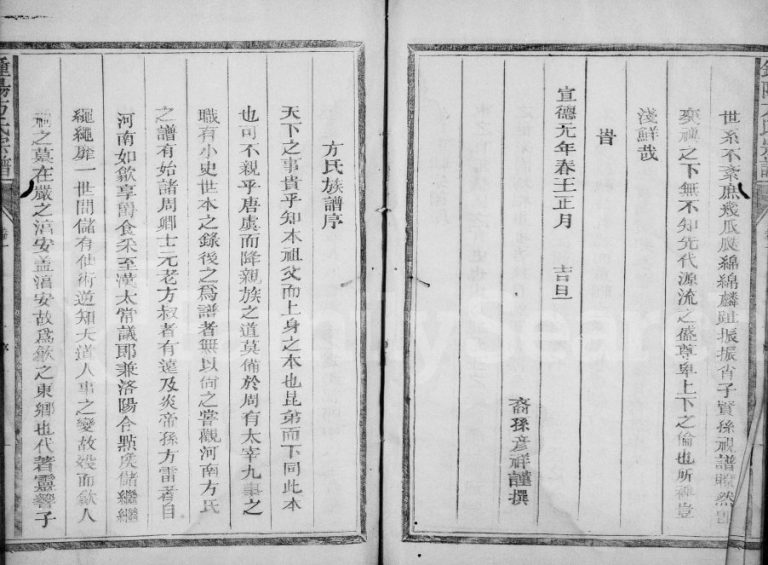 世系不紊庶幾瓜瓞綿綿麟趾振振肖子賢孫視譜瞭然
奕禩之下無不知先代源流之盛尊卑上下之倫也所裨豈
淺鮮哉
旹
宣德元年春王正月 吉旦
裔孫彦祥謹撰
方氏族譜序
天下之事貴乎知本祖父而上身之本也昆弟而下同此本
也可不親乎唐虞而降親族之道莫備於周有太宰九事之
職有小史世本之錄後之爲譜者無以尚之嘗觀河南方氏
之譜有始諸周卿士元老方叔者有遠及炎帝孫方雷者自
河南如歙享爵食采至漢太常議郎兼洛陽令黟侯儲繼繼
繩繩厥一世間儲有仙術逆知天道人事之變故歿而歙人
祠之墓在嚴之淳安盖淳安故爲歙之東鄉也代著靈響子
方氏宗譜